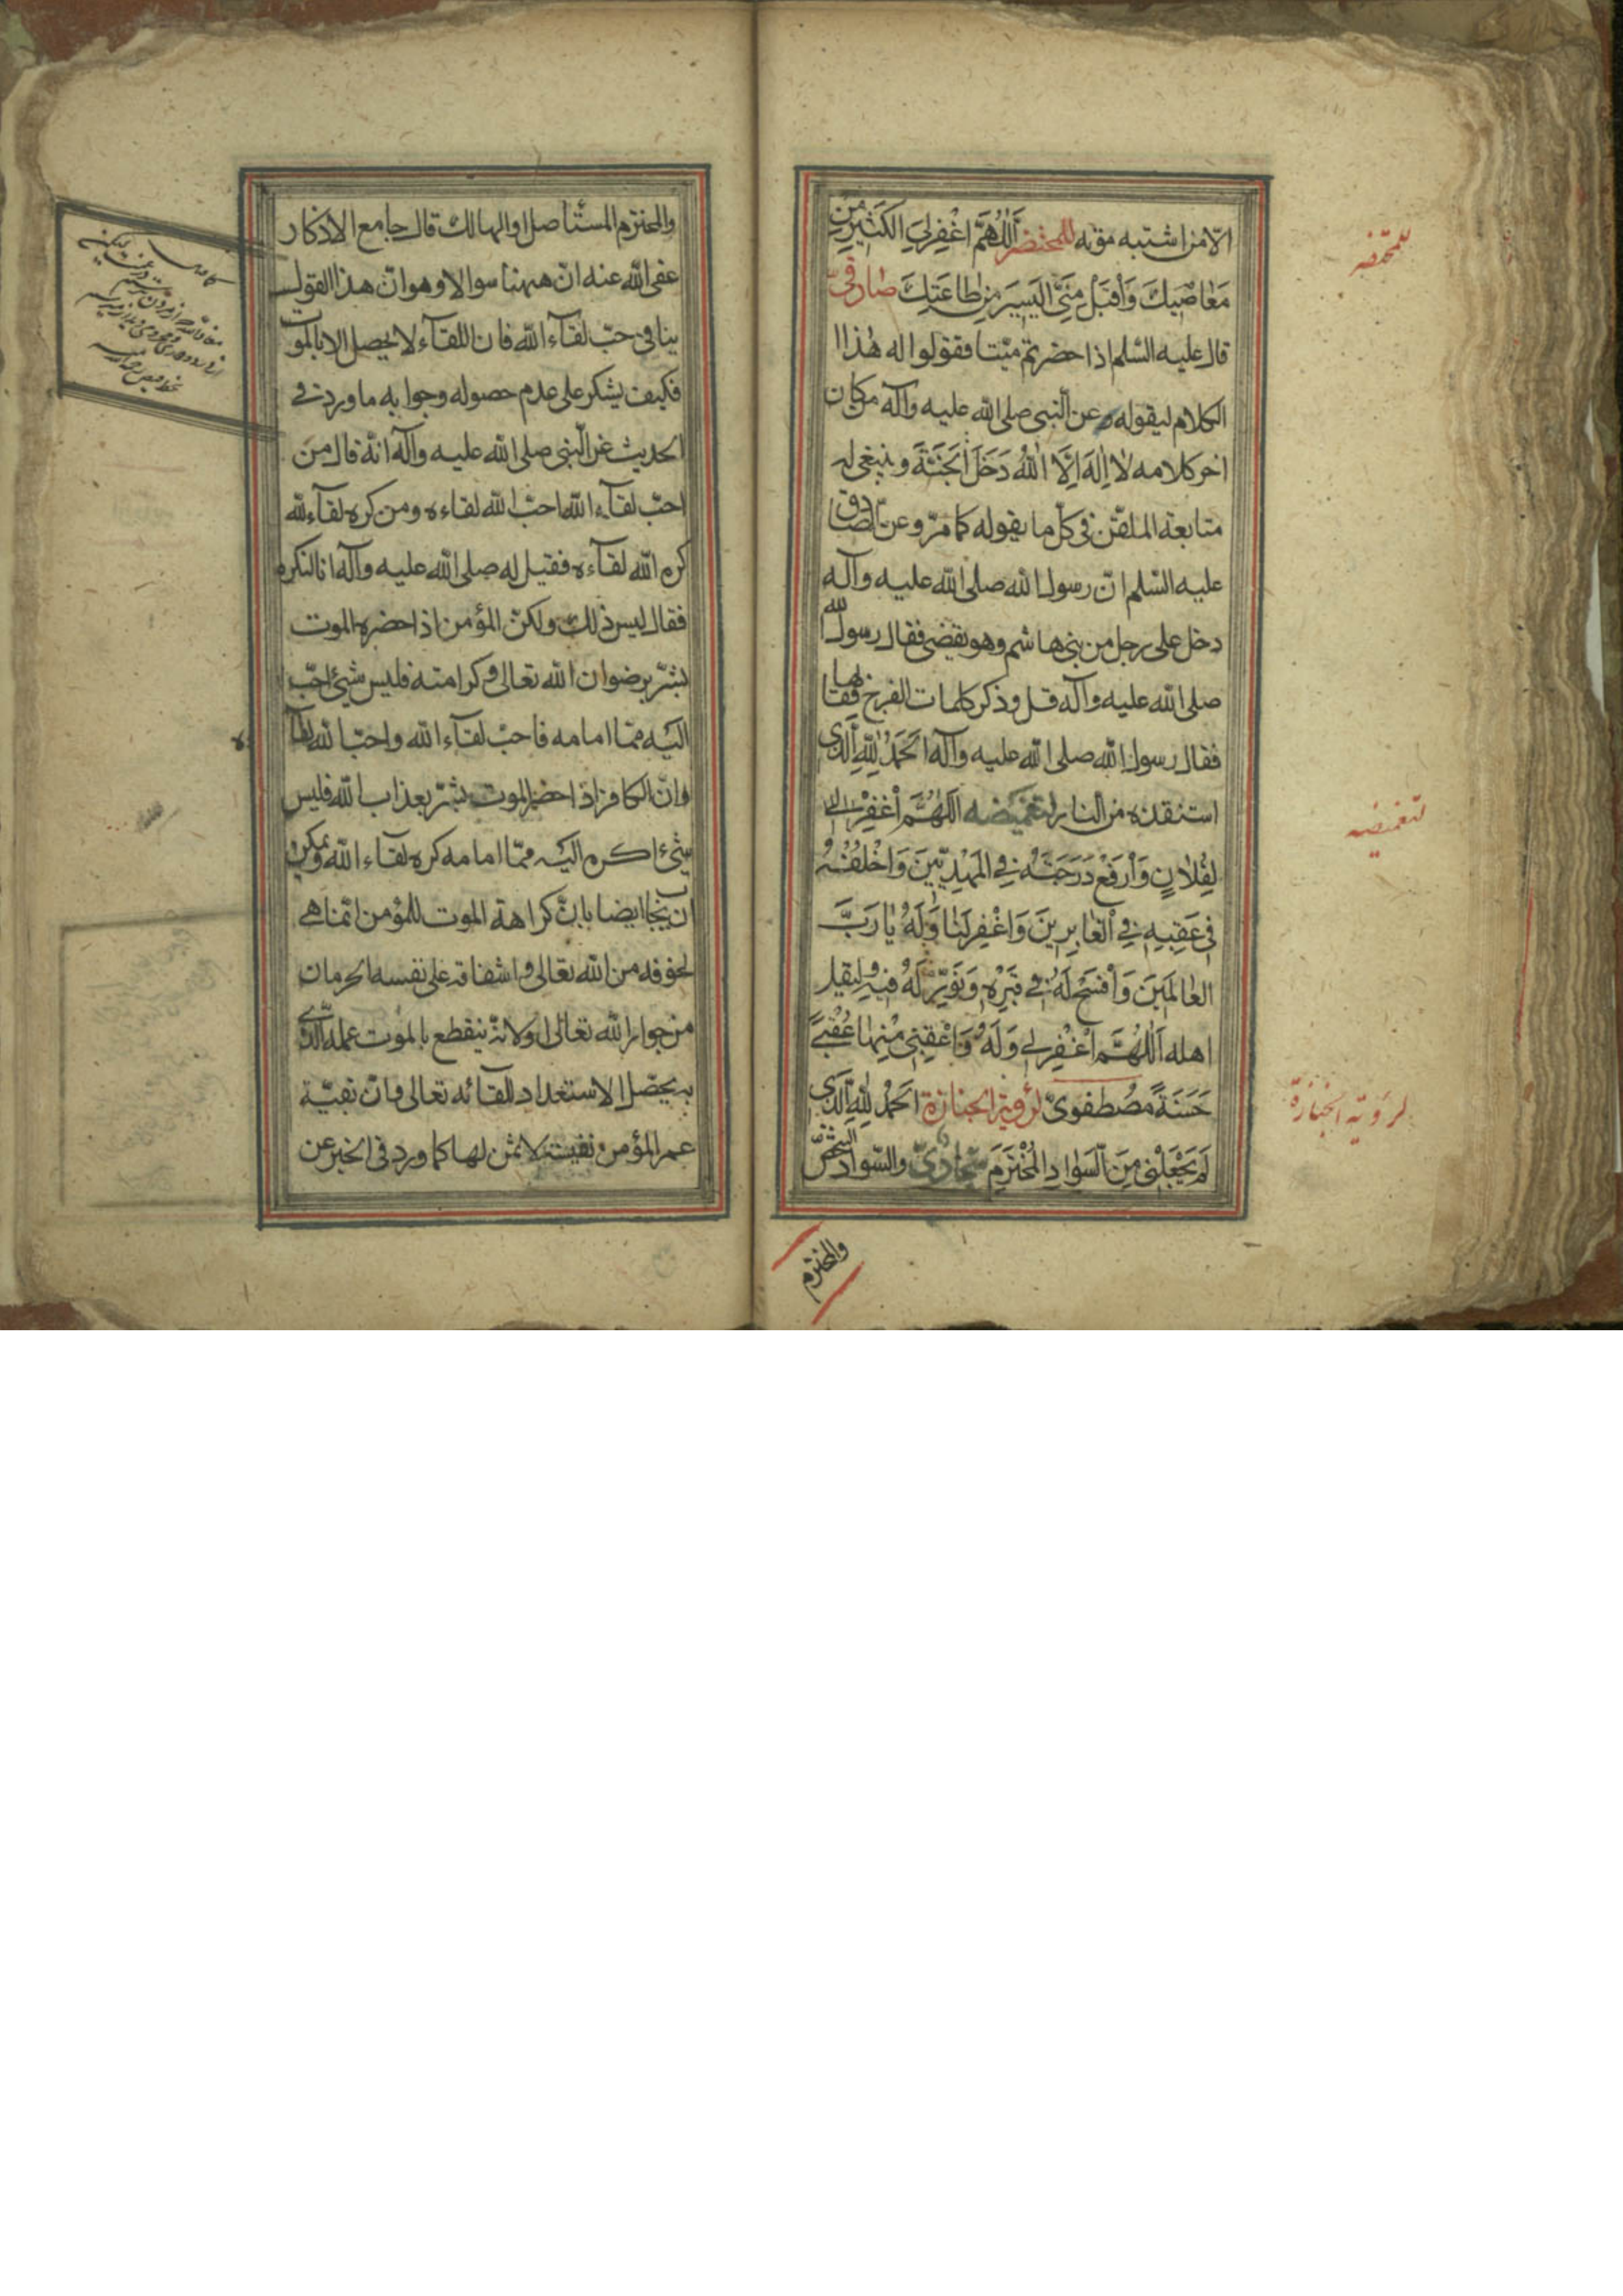 الا من اشتبه موته للمحتضر اَللّٰهُمَّ اغْفِرْلِیَ الْكَثِیرَ مِنْ
مَعٰاصِیكَ وَاَقْبَلْ مِنِّی الْیَسیرَ مِنْ طٰاعَتِكَ صٰادقیّ
قال علیه السّلم اذا حضرتم میّتا فقولوا له هٰذا ا
الكلام لیقوله وعن النّبی صلی الله علیه وآله من كان
اخر كلامه لٰا اِلٰهَ اِلَّا اللّٰهُ دَخَلَ الْجَنَّةَ وینبغی له
متابعة الملقّن فی كلّ ما یقوله كما مرّ وعن الصّادق
علیه السّلم انّ رسول الله صلی الله علیه وآله
دخل علی رجل من بنی هاشم وهو یقضی فقال رسول الله
صلی الله علیه وآله قل وذكر كلمات الفرج فقالها
فقال رسول الله صلی الله علیه وآله اَلْحَمْدُ لِلّٰهِ الَّذی
استنقذه من النار لتغمیضه اَللّٰهُمَّ اغْفِرْ
لِفُلٰانٍ وَارْفَعْ دَرَجَتَهُ فِی الْمَهْدِیّینَ وَاخْلُفْهُ
فی عَقِبِهِ فِی الْغٰابِرینَ وَاغْفِرْ لَنٰا وَلَهُ یٰا رَبَّ
الْعٰالَمینَ وَافْسَحْ لَهُ فی قَبْرِهِ وَنَوِّرْ لَهُ فیهِ ولیقل
اهله اَللّٰهُمَّ اغْفِرْ لی وَلَهُ وَاَعْقِبْنی مِنْهٰا عُقْبیً
حَسَنَةً مصُطفویّ لرؤیة الجنازة اَلْحَمْدُ لِلّٰهِ الَّذی
لَمْ یَجْعَلْنی مِنَ السَّوٰادِ الْمُخْتَرَمِ سجّادیّ والسّواد الشّخص
والمخترم
للمحتضر
لتغمیضه
لرؤیة الجنازة
والمخترم المستأصل او الهالك قال جامع الاذكار
عفی الله عنه انّ ههنا سوالا وهو انّ هذا القول
ینافی حبّ لقآء الله فان اللقآء لا یحصل الا بالموت
فكیف یشكر علی عدم حصوله وجوابه ما ورد فی
الحدیث عن النّبی صلی الله علیه وآله انّه قال من
احبّ لقآء الله احبّ الله لقاءه ومن كره لقآء الله
كره الله لقآءه فقیل له صلی الله علیه وآله انا لنكره
فقال لیس ذلك ولكنّ المؤمن اذا حضره الموت
بشّر برضوان الله تعالی وكرامته فلیس شیئ احبّ
الیه ممّا امامه فاحبّ لقآء الله واحبّ الله لقآء
وانّ الكافر اذا حضر الموت بشّر بعذاب الله فلیس
شیئ اكره الیه ممّا امامه كره لقاء الله ویمكن
ان یجاب ایضا بانّ كراهة الموت للمؤمن انّما هی
لخوفه من الله تعالی واشفاقه علی نفسه الحرمان
من جوار الله تعالی ولانّه ینقطع بالموت عمله الّذی
به یحصّل الاستعداد للقائه تعالی فانّ بقیّة
عمر المؤمن نفیسة لا ثمن لها كما ورد فی الخبر عن